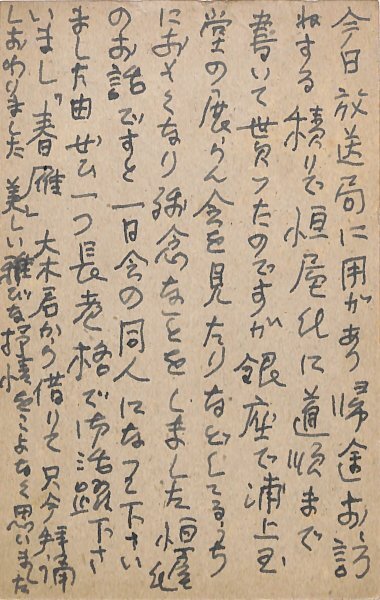 今日放送局に用があり帰途お訪
ねする積りで恒庵氏に道順まで
書いて貰つたのですが銀座で浦上玉
堂の展らん会を見たりなどしてゐるうち
におそくなり残念なことをしました 恒庵氏
のお話ですと一日会の同人になつて下さい
ました由 ぜひ一つ長老格で御活躍下さ
いまし 「春雁」 大木居から借りて只今拝誦
しおわりました 美しい雅びな 情をこよなく思いました